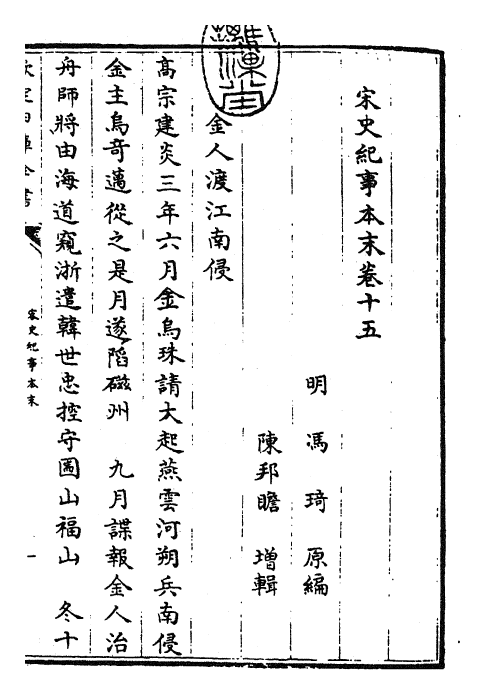 宋史紀事本末卷十五
明　馮　琦　原編
陳邦瞻　增輯
金人渡江南侵
高宗建炎三年六月金烏珠請大起燕雲河朔兵南侵
金主烏奇邁從之是月遂陷磁州　九月諜報金人治
舟師將由海道窺浙遣韓世忠控守圌山福山　冬十
欽定四庫全書
宋史紀事本末
一